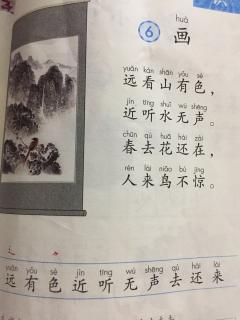 huà
6 画
yuǎn kàn shān yǒu sè
远看山有色，
jìn tīng shuǐ wú shēng
近听水无声。
chūn qù huā hái zài
春去花还在，
rén lái niǎo bù jīng
人来鸟不惊。
yuǎn yǒu sè jìn tīng wú shēng qù hái lái
远有色近听无声去还来